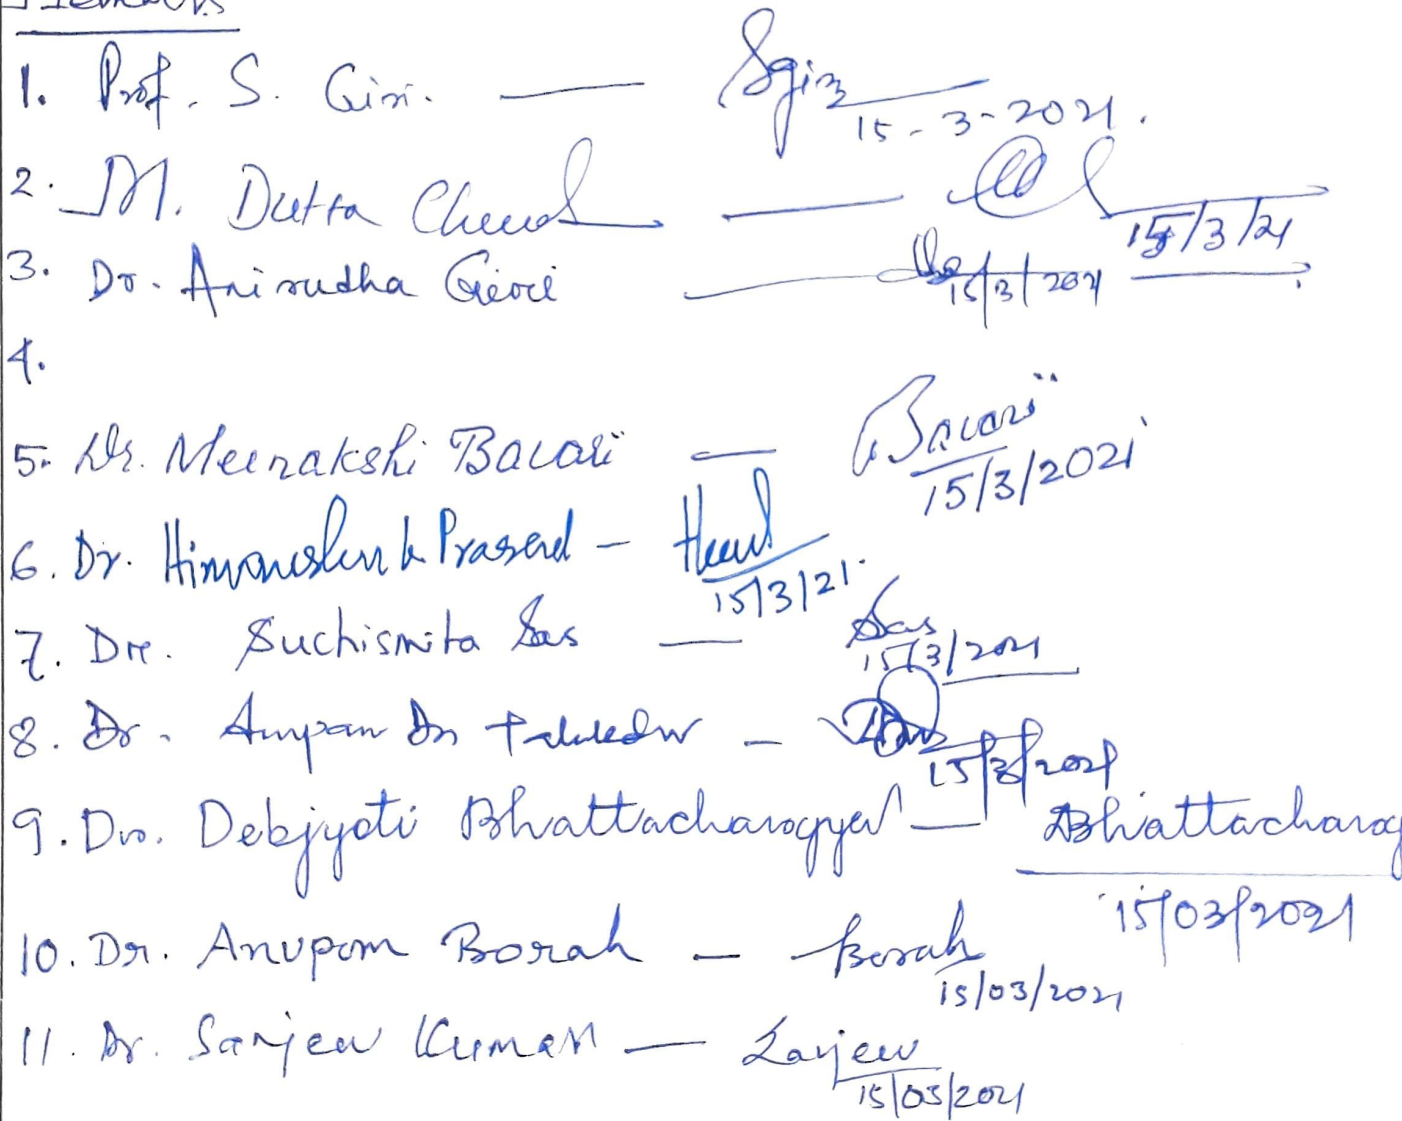 1. Prof. S. Giri. — Sgiri
15-3-2021.
2. M. Dutta Choud —
15/3/21
3. Dr. Anirudha Giri —
15/3/2021
4.
5. Dr. Meenakshi Bawari — Bawari
15/3/2021
6. Dr. Himanshu k Prasad —
15/3/21.
7. Dr. Suchismita Das — Das
15/3/2021
8. Dr. Anupam Das Talukdar — Das
15/3/2021
9. Dr. Debjyoti Bhattacharyya — Bhattacharay
15/03/2021
10. Dr. Anupom Borah — Borah
15/03/2021
11. Dr. Sanjeev Kumar — Sanjeev
15/03/2021